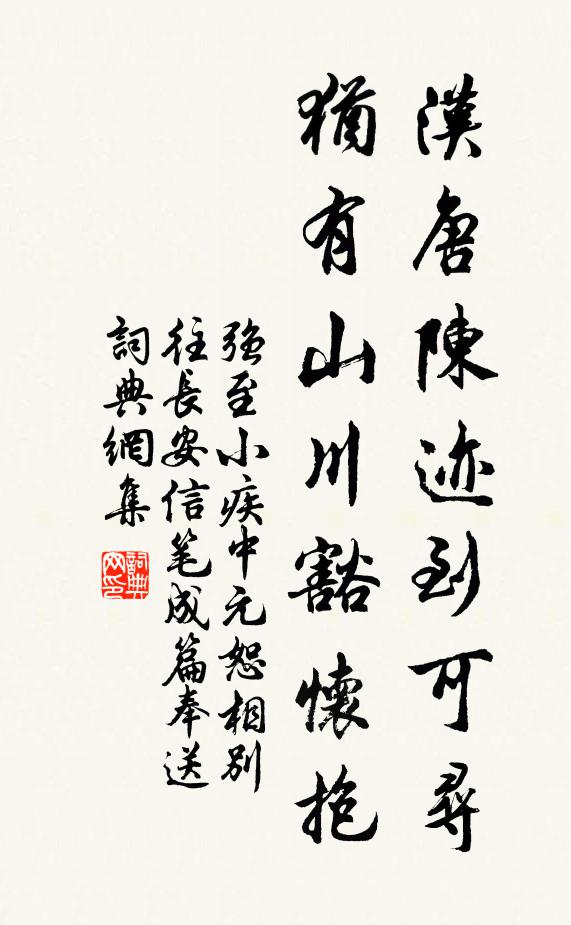 漢唐陳迹到可尋
猶有山川豁懷抱
强至小疾中元恕相別
往長安信笔成篇奉送
詞典網集
詞典网印